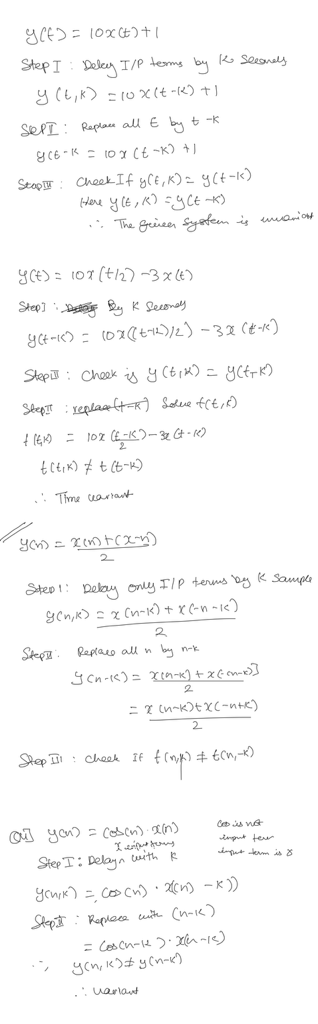 y(t) = 10x(t)+1
Step I : Delay I/P terms by K Seconds
y(t,K) = 10x(t-K)+1
Step II : Replace all t by t-K
y(t-K = 10x(t-K)+1
Step III : Check If y(t,K) = y(t-K)
Here y(t,K) = y(t-K)
∴ The System is
y(t) = 10x(t/2) - 3x(t)
Step I : By K Seconds
y(t-K) = 10x((t-K)/2) - 3x(t-K)
Step III : Check is y(t,K) = y(t-K)
Step II : replace (t-K) Solve f(t,K)
f(t,K) = 10x(t-K)/2 - 3x(t-K)
f(t,K) ≠ t(t-K)
∴ Time variant
y(n) = x(n)+(x-n)/2
Step I : Delay only I/P terms by K Sample
y(n,K) = x(n-K)+x(-n-K)/2
Step II : Replace all n by n-K
y(n-K) = x(n-K)+x[-(n-K)]/2
= x(n-K)+x(-n+K)/2
Step III : Check If f(n,K) ≠ f(n,-K)
y(n) = cos(n)·x(n)
cos is not
input term
input term is x
Step I : Delay n with K
y(n,K) = cos(n)·x(n) -K))
Step II : Replace with (n-K)
= cos(n-K)·x(n-K)
∴, y(n,K) ≠ y(n-K)
∴ variant